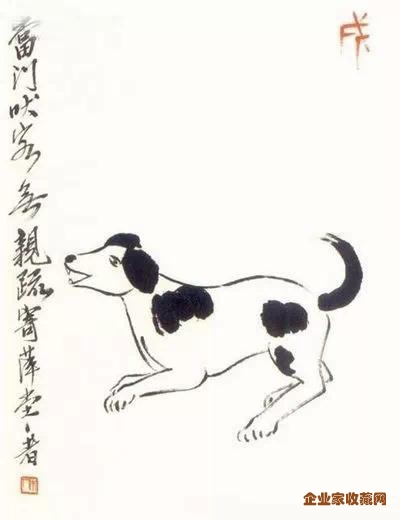 戌
當門吠客無親疏寄萍堂上者
企业家收藏网